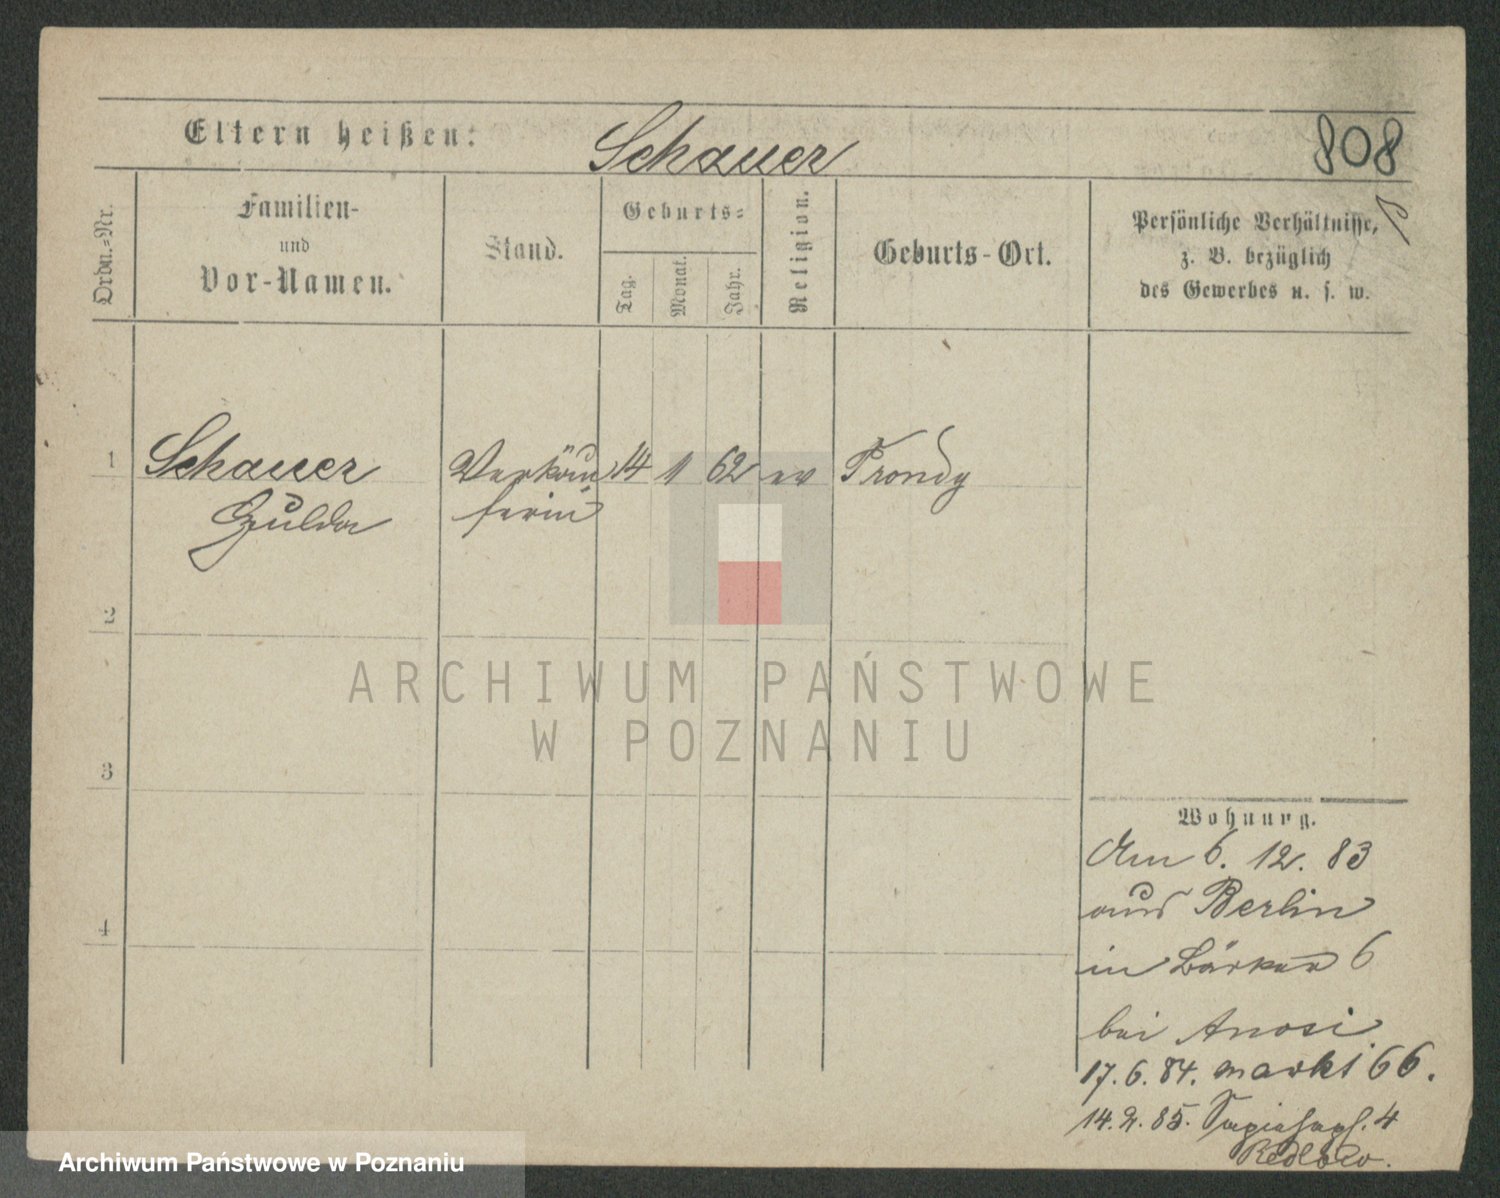 Eltern heißen: Schauer 808
Ordn.-Nr.
Familien-
und
Vor-Namen.
Stand.
Geburts-
Tag.
Monat.
Jahr.
Religion.
Geburts-Ort.
Persönliche Verhältnisse,
z. B. bezüglich
des Gewerbes u. s. w.
1 Schauer Verkäu 14 1 62 ev Trondy
Hulda ferin
2
3
4
Wohnung.
Am 6. 12. 83
aus Berlin
in Bäcker 6
bei
17. 6. 84. Markt 66.
14. 2. 85. 4
ARCHIWUM PAŃSTWOWE
W POZNANIU
Archiwum Państwowe w Poznaniu